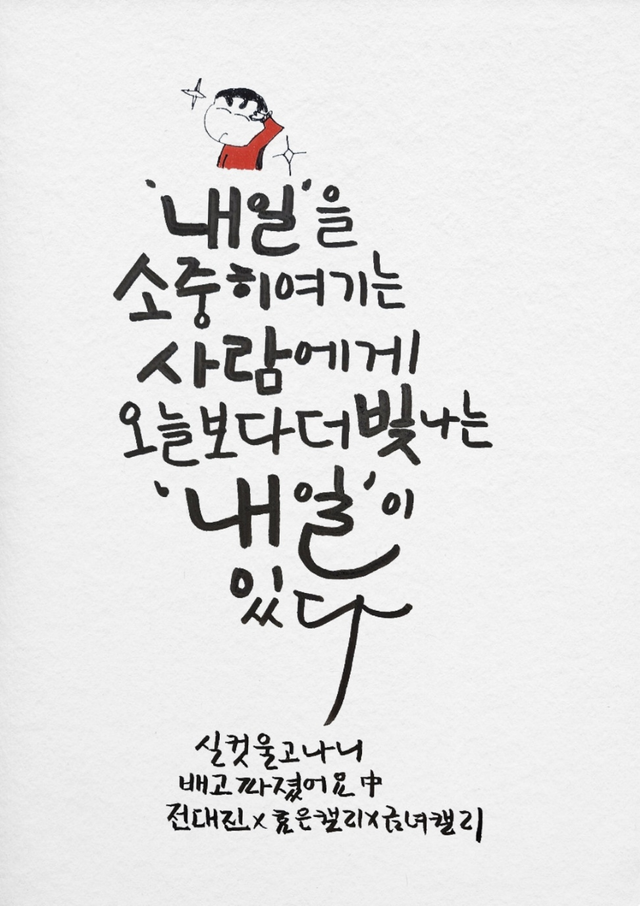 '내일'을
소중히여기는
사람에게
오늘보다더빛나는
'내일'이
있다
실컷울고나니
배고파졌어요中
전대진x효은캘리x금녀캘리